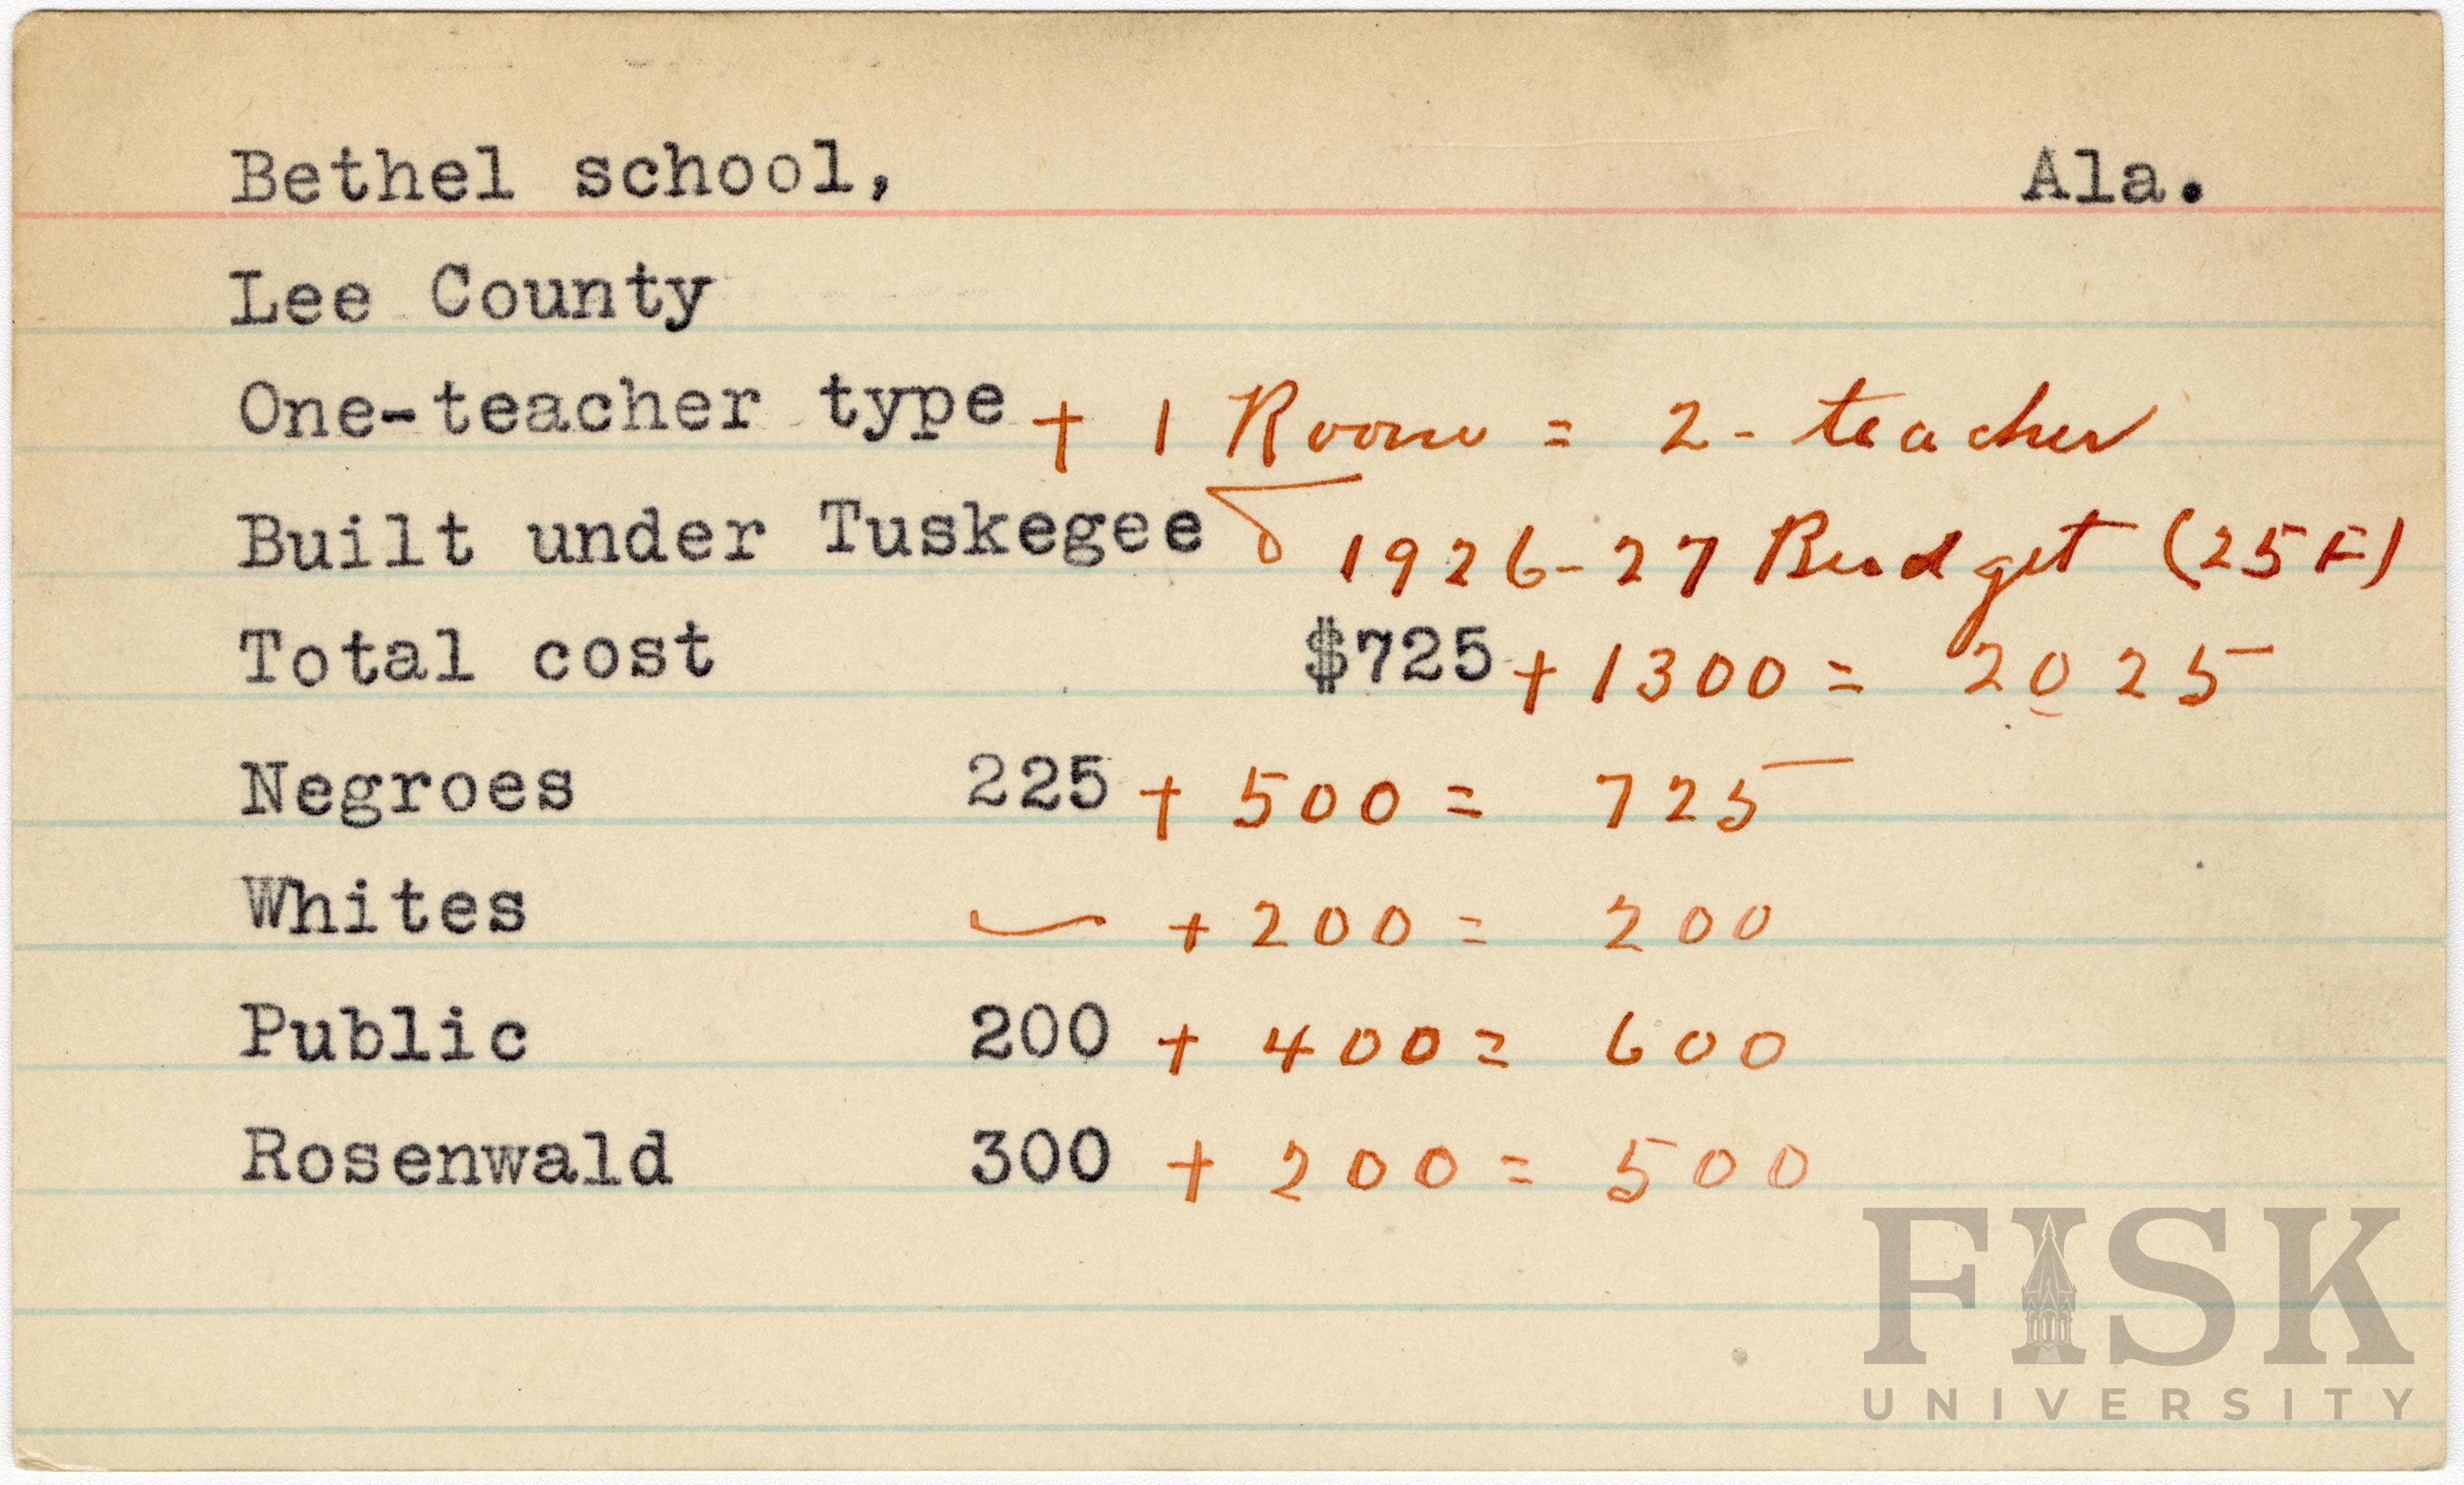 Bethel school, Ala.
Lee County
One-teacher type + 1 Room = 2-teacher
Built under Tuskegee & 1926-27 Budget (25F)
Total cost $725 + 1300 = 2025
Negroes 225 + 500 = 725
Whites — + 200 = 200
Public 200 + 400 = 600
Rosenwald 300 + 200 = 500
FISK
UNIVERSITY